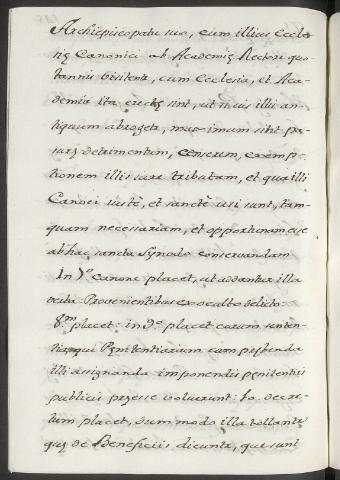 Archiepiscopatu suo, cum illius Eccle
siæ Canonici ab Academiæ Rectore quo
tannis visitentur, cum Ecclesia, et Aca
demia ita erectæ sint, ut nisi illi an
tiquum abrogetur, maximum sibi pa
sura detrimentum, censeo, exemp
tionem illis iure tributam, et qua illi
Canoci iustè, et sanctè usi sunt, tam
quam necessariam, et opportunam esse
ab hac sancta Synodo conservandam
In 7.º canone placet, ut addantur illa
verba Provenientibus ex occulto delicto:
8.m placet: in 9.º placet eorum senten
tia, qui Penitentiarium cum prebenda
illi assignanda imponendis penitentiis
publicis præesse voluerunt: 10. decre
tum placet, dummodo illa tollantur
quæ de Beneficiis dicuntur, que sunt